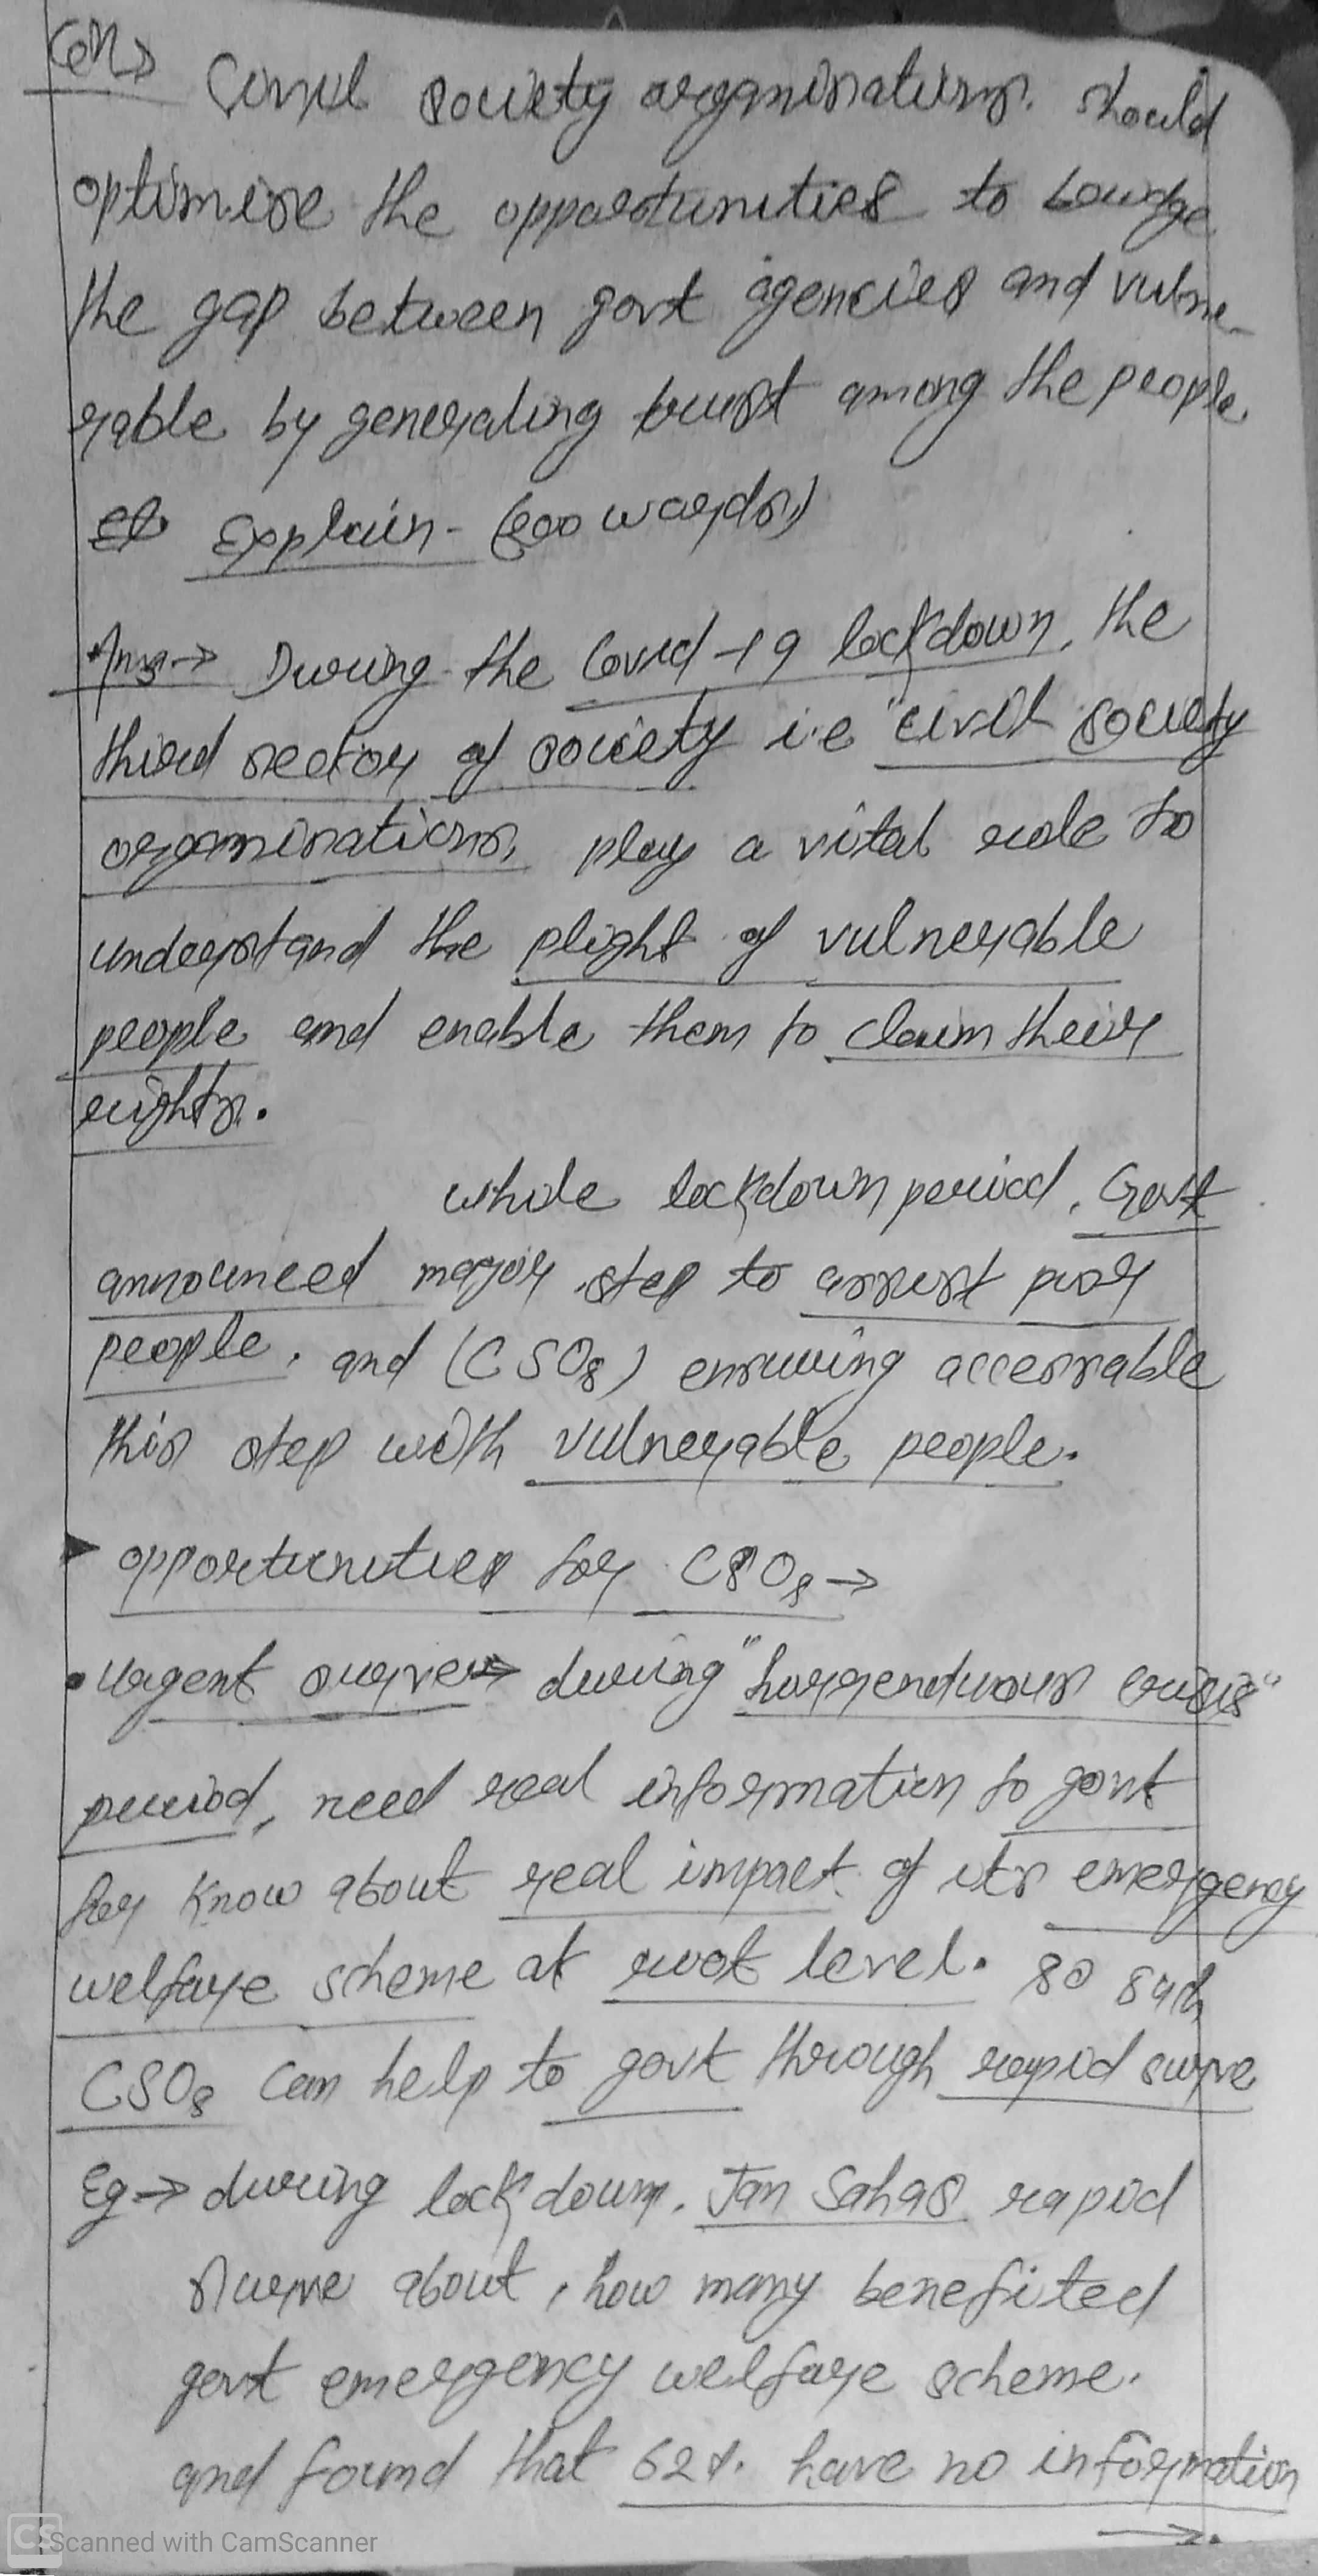 Civil society organisations. should
optimise the opportunities to bridge
the gap between govt agencies and vulne-
rable by generating trust among the people
Explain - (200 words)
Ans→ During the Covid-19 lockdown, the
third sector of society i.e "civil society
organisations, play a vital role to
understand the plight of vulnerable
people and enable them to claim their
rights.
whole lockdown period, Govt
announced major step to assist poor
people, and (CSOs) ensuring accessable
this step with vulnerable people.
opportunities for CSOs→
• Urgent survey→ during "horrenduous crisis"
period, need real information to govt
for know about real impact of its emergency
welfare scheme at root level. So such
CSOs can help to govt through rapid surve
Eg→ during lockdown, Jan Sahas rapid
surve about, how many benefited
govt emergency welfare scheme.
and found that 62%. have no information
→.
CS Scanned with CamScanner